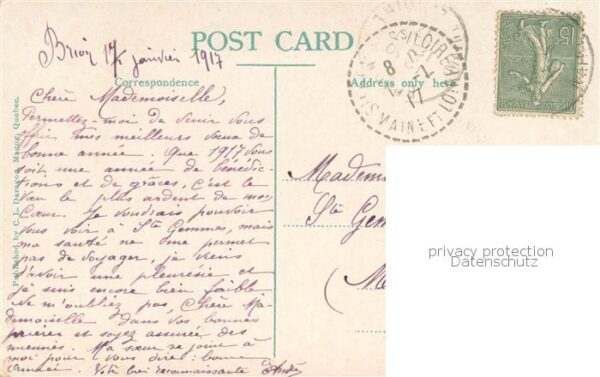 Brion 17 janvier 1917
POST CARD
Correspondence
Address only here
15c
Published by C. L. Magog, Quebec.
Chère Mademoiselle,
Permettez-moi de venir vous
offrir mes meilleurs vœux de
bonne année. Que 1917 vous
soit une année de bénédic-
tions et de grâces, c'est le
vœu le plus ardent de mon
Cœur. Je voudrais pouvoir
vous voir à Ste Gemmes, mais
ma santé ne me permet
pas de voyager, je viens
d'avoir une pleurésie et
je suis encore bien faible
Ne m'oubliez pas, Chère Ma-
demoiselle dans vos bonnes
prières et soyez assurée des
miennes. Ma sœur se joint à
moi pour vous dire: bonne
année. Votre bien reconnaissante
Madem
Ste Gem
(M
MAINE ET LOIRE
8
17
privacy protection
Datenschutz